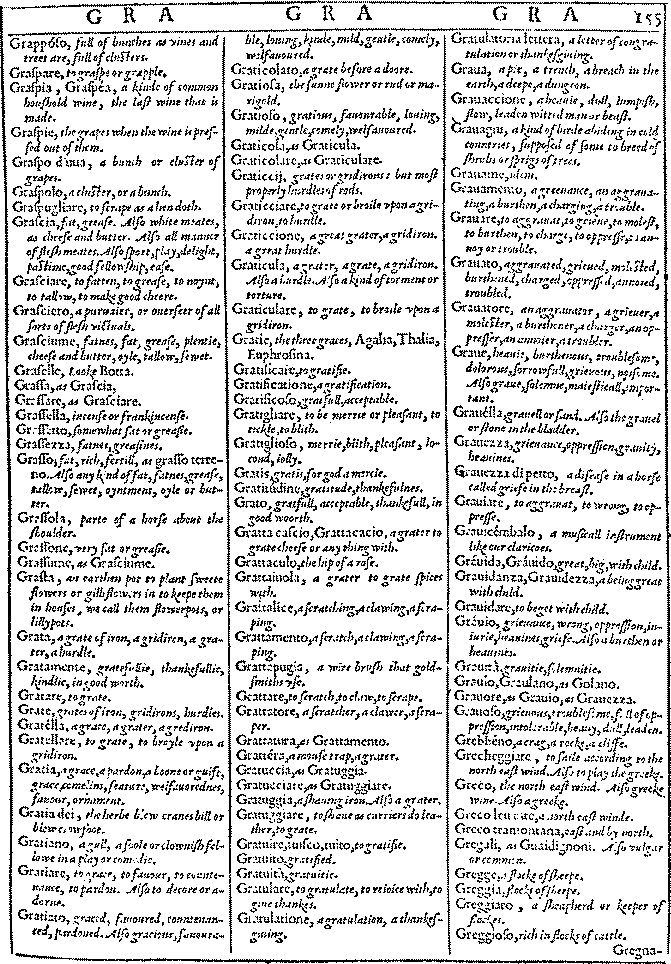 G R A
G R A
G R A
155
Grappóso, full of bunches as vines and
tree are, full of clusters.
Graspare, to graspe or grapple.
Graspia, Graspéa, a kinde of common
houshold wine, the last wine that is
made.
Graspie, the grapes when the wine is pres-
sed out of them.
Graspo d'uua, a bunch or cluster of
grapes.
Graspolo, a cluster, or a bunch.
Graspugliare, to scrape as a hen doth.
Grascia, fat, grease. Also white meates,
as cheese and butter. Also all manner
of flesh meates. Also sport, play, delight,
pastime, good fellowship, ease.
Grasciare, to fatten, to grease, to noynt,
to tallow, to make good cheere.
Grasciero, a purvaier, or overseer of all
sorts of flesh victuals.
Grasciume, fatnes, fat, grease, plentie,
cheese and butter, oyle, tallow, sewet.
Graselle, looke Botta.
Grassa, as Grascia.
Grassare, as Grasciare.
Grassella, incense or frankincense.
Grassetto, somewhat fat or greasie.
Grassezza, fatnes, greasines.
Grasso, fat, rich, fertill, as grasso terre-
no. Also any kind of fat, fatnes, grease,
tallow, sewet, oyntment, oyle or but-
ter.
Grassola, parte of a horse about the
shoulder.
Grassone, very fat or greasie.
Grassume, as Grasciume.
Grasta, an earthen pot to plant sweete
flowers or gilliflowers in to keepe them
in houses, we call them flowerpots, or
lillypots.
Grata, a grate of iron, a gridiren, a gra-
ter, a hurdle.
Gratamente, gratefullie, thankefullie,
kindlie, in good worth.
Gratare, to grate.
Grate, grates of iron, gridirons, hurdles.
Gratélla, a grate, a grater, a grediron.
Gratellare, to grate, to broyle upon a
gridiron.
Gratia, a grace, a pardon, a boone or guift,
grace, comelines, feature, welfavourednes,
favour, ornament.
Gratia dei, the herbe blew cranes bill or
blewe crowfoot.
Gratiano, a gull, a foole or clownish fel-
lowe in a play or comedie.
Gratiare, to grace, to favour, to counte-
nance, to pardon. Also to decore or a-
dorne.
Gratiato, graced, favoured, countenan-
ced, pardoned. Also gracious, favoura-
ble, loving, kinde, mild, gentle, comely,
welfavoured.
Graticolato, a grate before a doore.
Gratiosa, the sunne flower or rud or ma-
rigold.
Gratioso, gratious, favourable, loving,
milde, gentle, comely, welfavoured.
Graticola, as Graticula.
Graticolare, as Graticulare.
Graticcij, grates or gridirons: but most
properly hurdles of rods.
Graticciare, to grate or broile upon a gri-
diron, to hurdle.
Graticcione, a great grater, a gridiron.
a great hurdle.
Graticula, a grater, a grate, a gridiron.
Also a hurdle. Also a kind of torment or
torture.
Graticulare, to grate, to broile upon a
gridiron.
Gratie, the three graces, Aglaia, Thalia,
Euphrosina.
Gratificare, to gratifie.
Gratificatione, a gratification.
Gratificoso, gratefull, acceptable.
Gratigliare, to be merrie or pleasant, to
tickle, to blith.
Gratiglioso, merrie, blith, pleasant, io-
cond, iolly.
Gratis, gratis, for god a mercie.
Gratitudine, gratitude, thankefulnes.
Grato, gratefull, acceptable, thankefull, in
good woorth.
Gratta cascio, Grattacacio, a grater to
grate cheese or any thing with.
Grattaculo, the hip of a rose.
Grattainola, a grater to grate spices
with.
Grattalice, a scratching, a clawing, a scra-
ping.
Grattamento, a scratch, a clawing, a scra-
ping.
Grattapugia, a wire brush that gold-
smiths vse.
Grattare, to scratch, to claw, to scrape.
Grattatore, a scratcher, a clawer, a scra-
per.
Grattatura, as Grattamento.
Grattéra, a mouse trap, a grater.
Gratuccia, as Gratuggia.
Gratucciare, as Gratuggiare.
Gratuggia, a shaving iron. Also a grater.
Gratuggiare, to shave as carriers do lea-
ther, to grate.
Gratuire, tuisco, tuito, to gratifie.
Gratuito, gratified.
Gratuità, gratuitie.
Gratulare, to gratulate, to reioice with, to
give thankes.
Gratulatione, a gratulation, a thankes-
giving.
Gratulatoria lettera, a letter of congra-
tulation or thankesgiving.
Graua, a pit, a trench, a breach in the
earth, a deepe, a dungeon.
Grauaccione, a heavie, dull, lumpish,
slow, leaden witted man or beast.
Grauagni, a kind of birde abiding in cold
countries, supposed of some to breed of
shrubs or sprigs of trees.
Grauame, idem.
Grauamento, a greevance, an aggrava-
ting, a burthen, a charging, a trouble.
Grauare, to aggravate, to grieve, to molest,
to burthen, to charge, to oppresse, to an-
noy or trouble.
Grauato, aggravated, grieved, molested,
burthened, charged, oppressed, annoied,
troubled.
Grauatore, an aggravator, a griever, a
molester, a burthener, a charger, an op-
presser, an annoier, a troubler.
Graue, heavie, burthenous, troublesome,
dolorous, sorrowfull, grievous, noisome.
Also grave, solemne, maiesticall, impor-
tant.
Grauélla, gravell or sand. Also the gravel
or stone in the bladder.
Grauezza, grievance, oppression, gravity,
heavines.
Grauezza di petto, a disease in a horse
called griefe in the breast.
Grauiare, to aggravat, to wrong, to op-
presse.
Grauicémbalo, a musicall instrument
like our claricoes.
Gráuida, Gráuido, great, big, with child.
Grauidanza, Grauidezza, a being great
with child.
Grauidare, to beget with child.
Gráuio, grievance, wrong, oppression, in-
iurie, heavines, griefe. Also a burthen or
heavines.
Grauità, gravitie, solemnitie.
Grauio, Graulano, as Golano.
Grauore, as Grauio, as Grauezza.
Grauoso, grievous, troublesome, full of op-
pression, intolerable, heavy, dull, leaden.
Grebbéno, a crag, a rocke, a cliffe.
Grecheggiare, to saile according to the
north east wind. Also to play the greeke.
Greco, the north east wind. Also greeke
wine. Also a greeke.
Greco leuante, a north east winde.
Greco tramontana, east and by north.
Gregali, as Guaidignoni. Also vulgar
or common.
Gregge, a flocke of sheepe.
Greggia, flocks of sheepe.
Greggiaro, a sheapherd or keeper of
flockes.
Greggioso, rich in flocks of cattle.
Gregna-